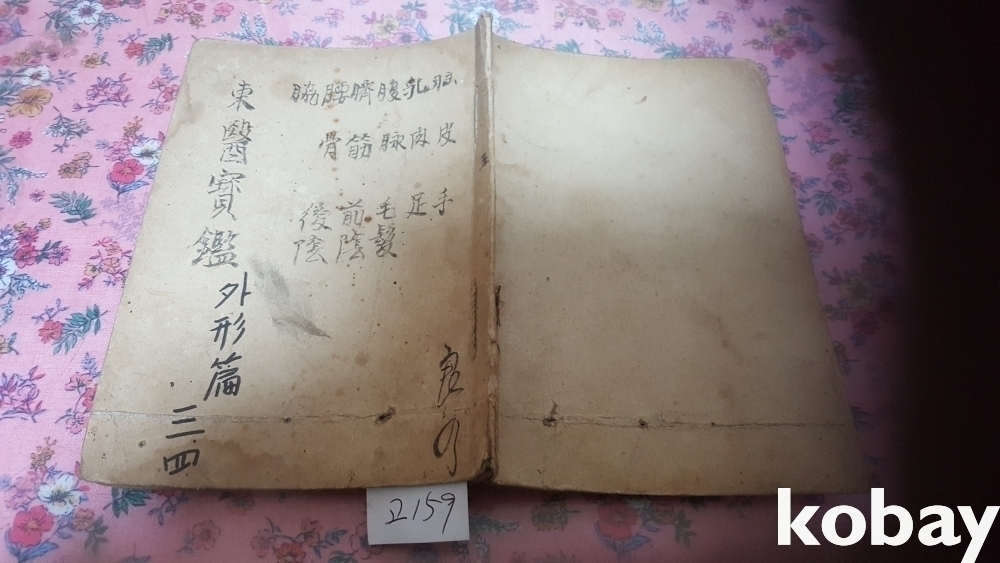 東醫寶鑑 外形篇 三 四
胸乳腹臍腰脇
皮肉脉筋骨
手足毛髮前陰後陰
2159
kobay